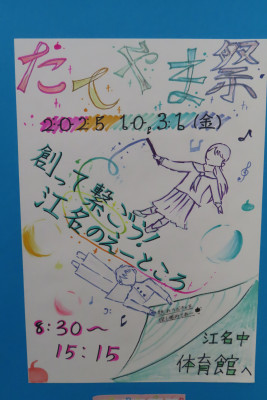 たてやま祭
2025.10.31(金)
創って繋ごう!!
江名のえーところ
8:30〜
15:15
江名中
体育館へ